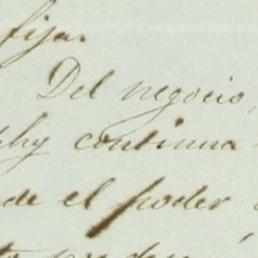 fija.
Del negocio,
phy continua
de el poder